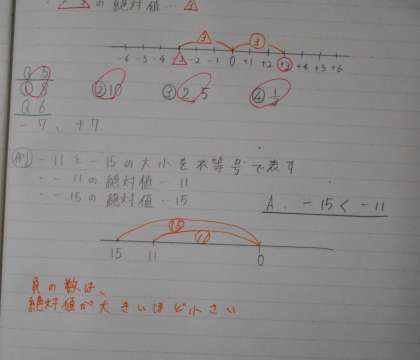 の絶対値…
3 3
-6 -5 -4 -3 -2 -1 0 +1 +2 +3 +4 +5 +6
② 10 ③ 2.5 ④ 1/2
Q6
-7、+7
-11と-15の大小を不等号で表す
・-11の絶対値…11
・-15の絶対値…15
A. -15<-11
15 11
15 11 0
負の数は、
絶対値が大きいほど小さい